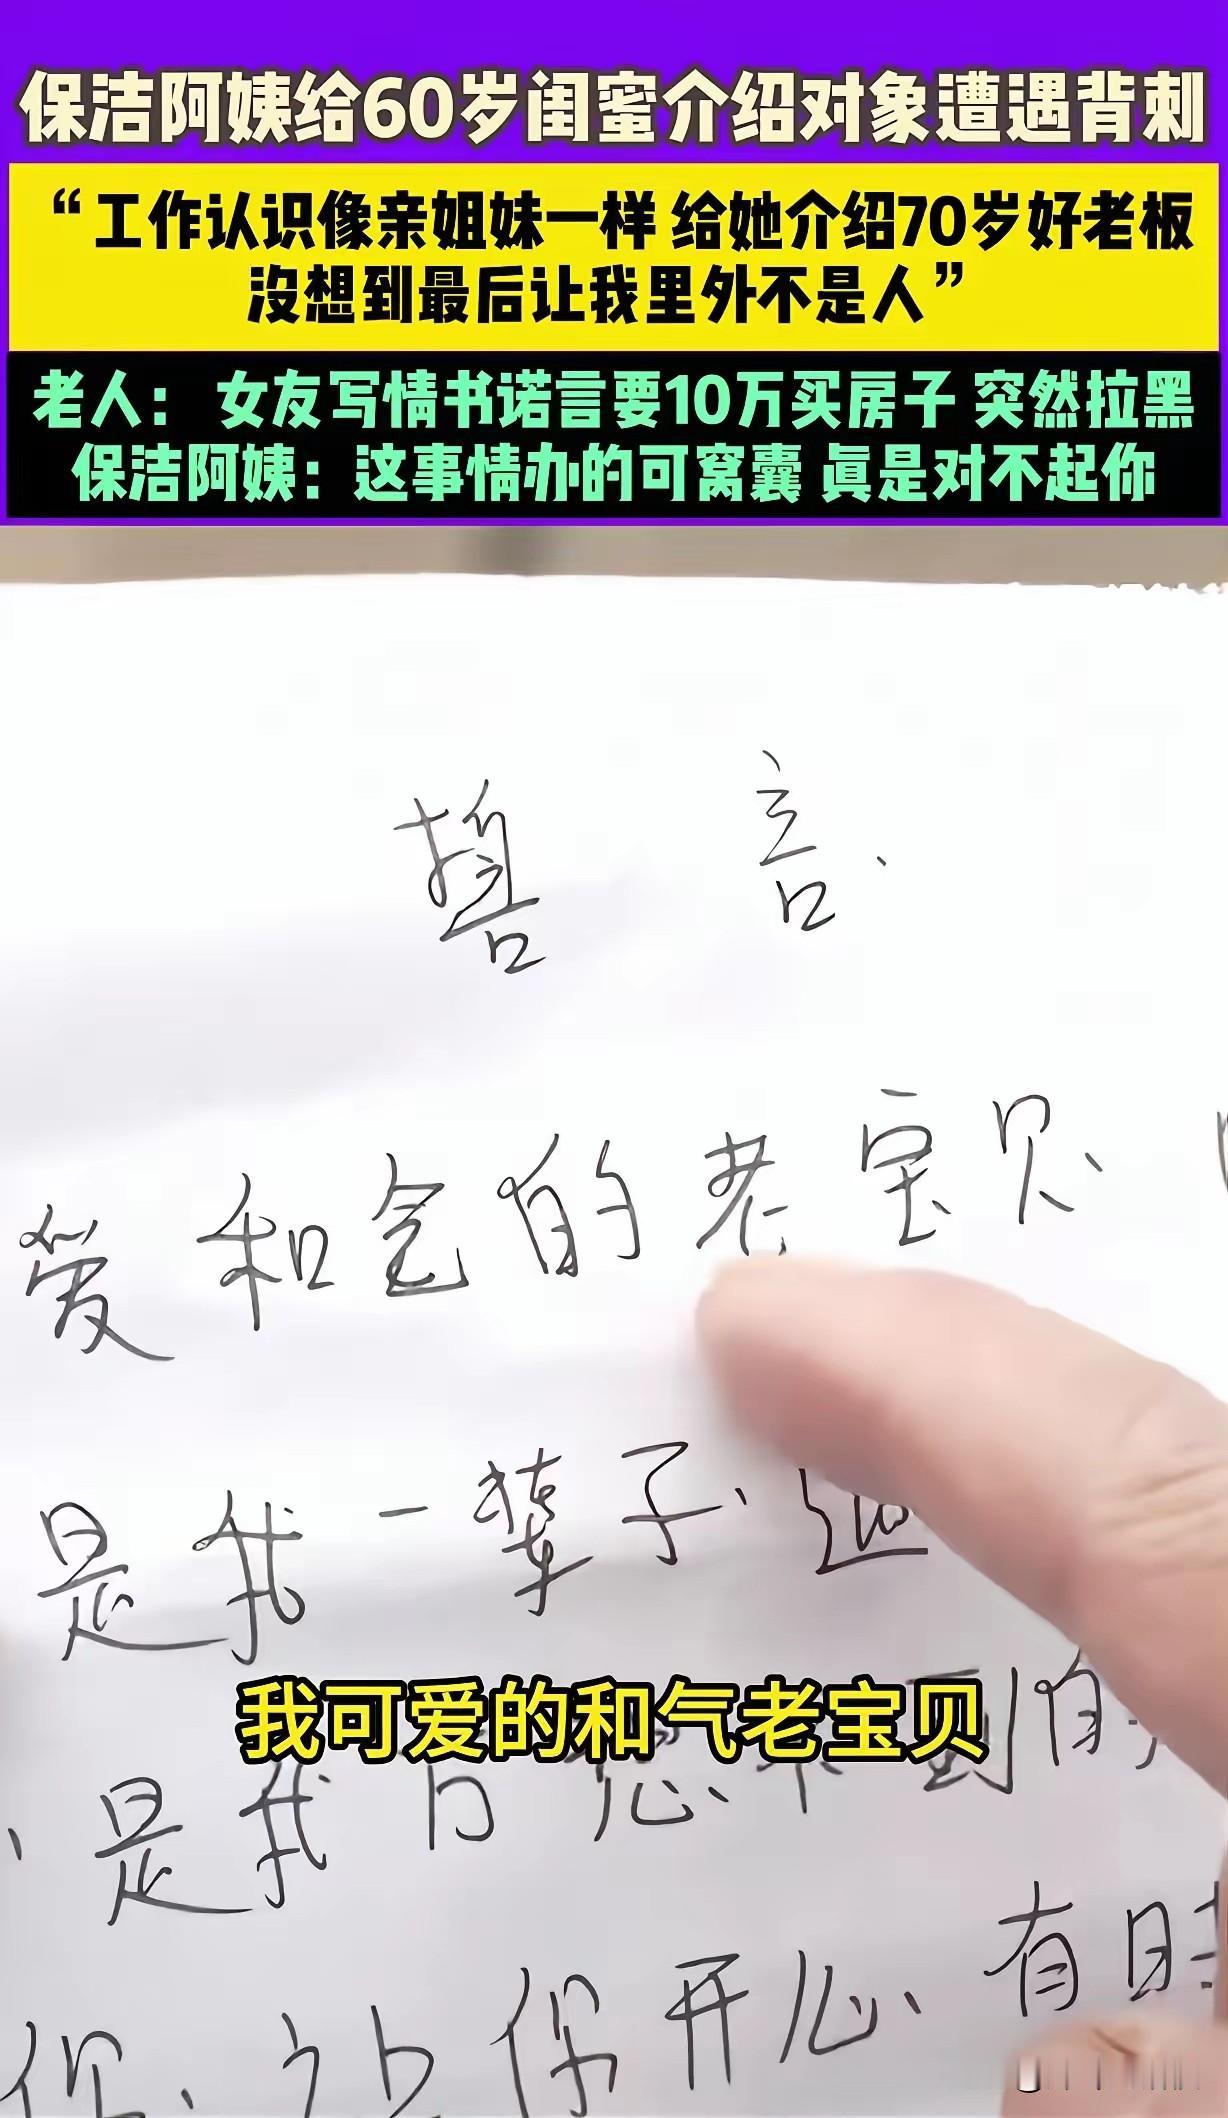 保洁阿姨给60岁闺蜜介绍对象遭遇背刺
“工作认识像亲姐妹一样 给她介绍70岁好老板
没想到最后让我里外不是人”
老人： 女友写情书诺言要10万买房子 突然拉黑
保洁阿姨：这事情办的可窝囊 真是对不起你
誓 言.
爱和气的老宝贝、
是我一辈子、追
我可爱的和气老宝贝
是我 想不到的
你、让你开心、有时